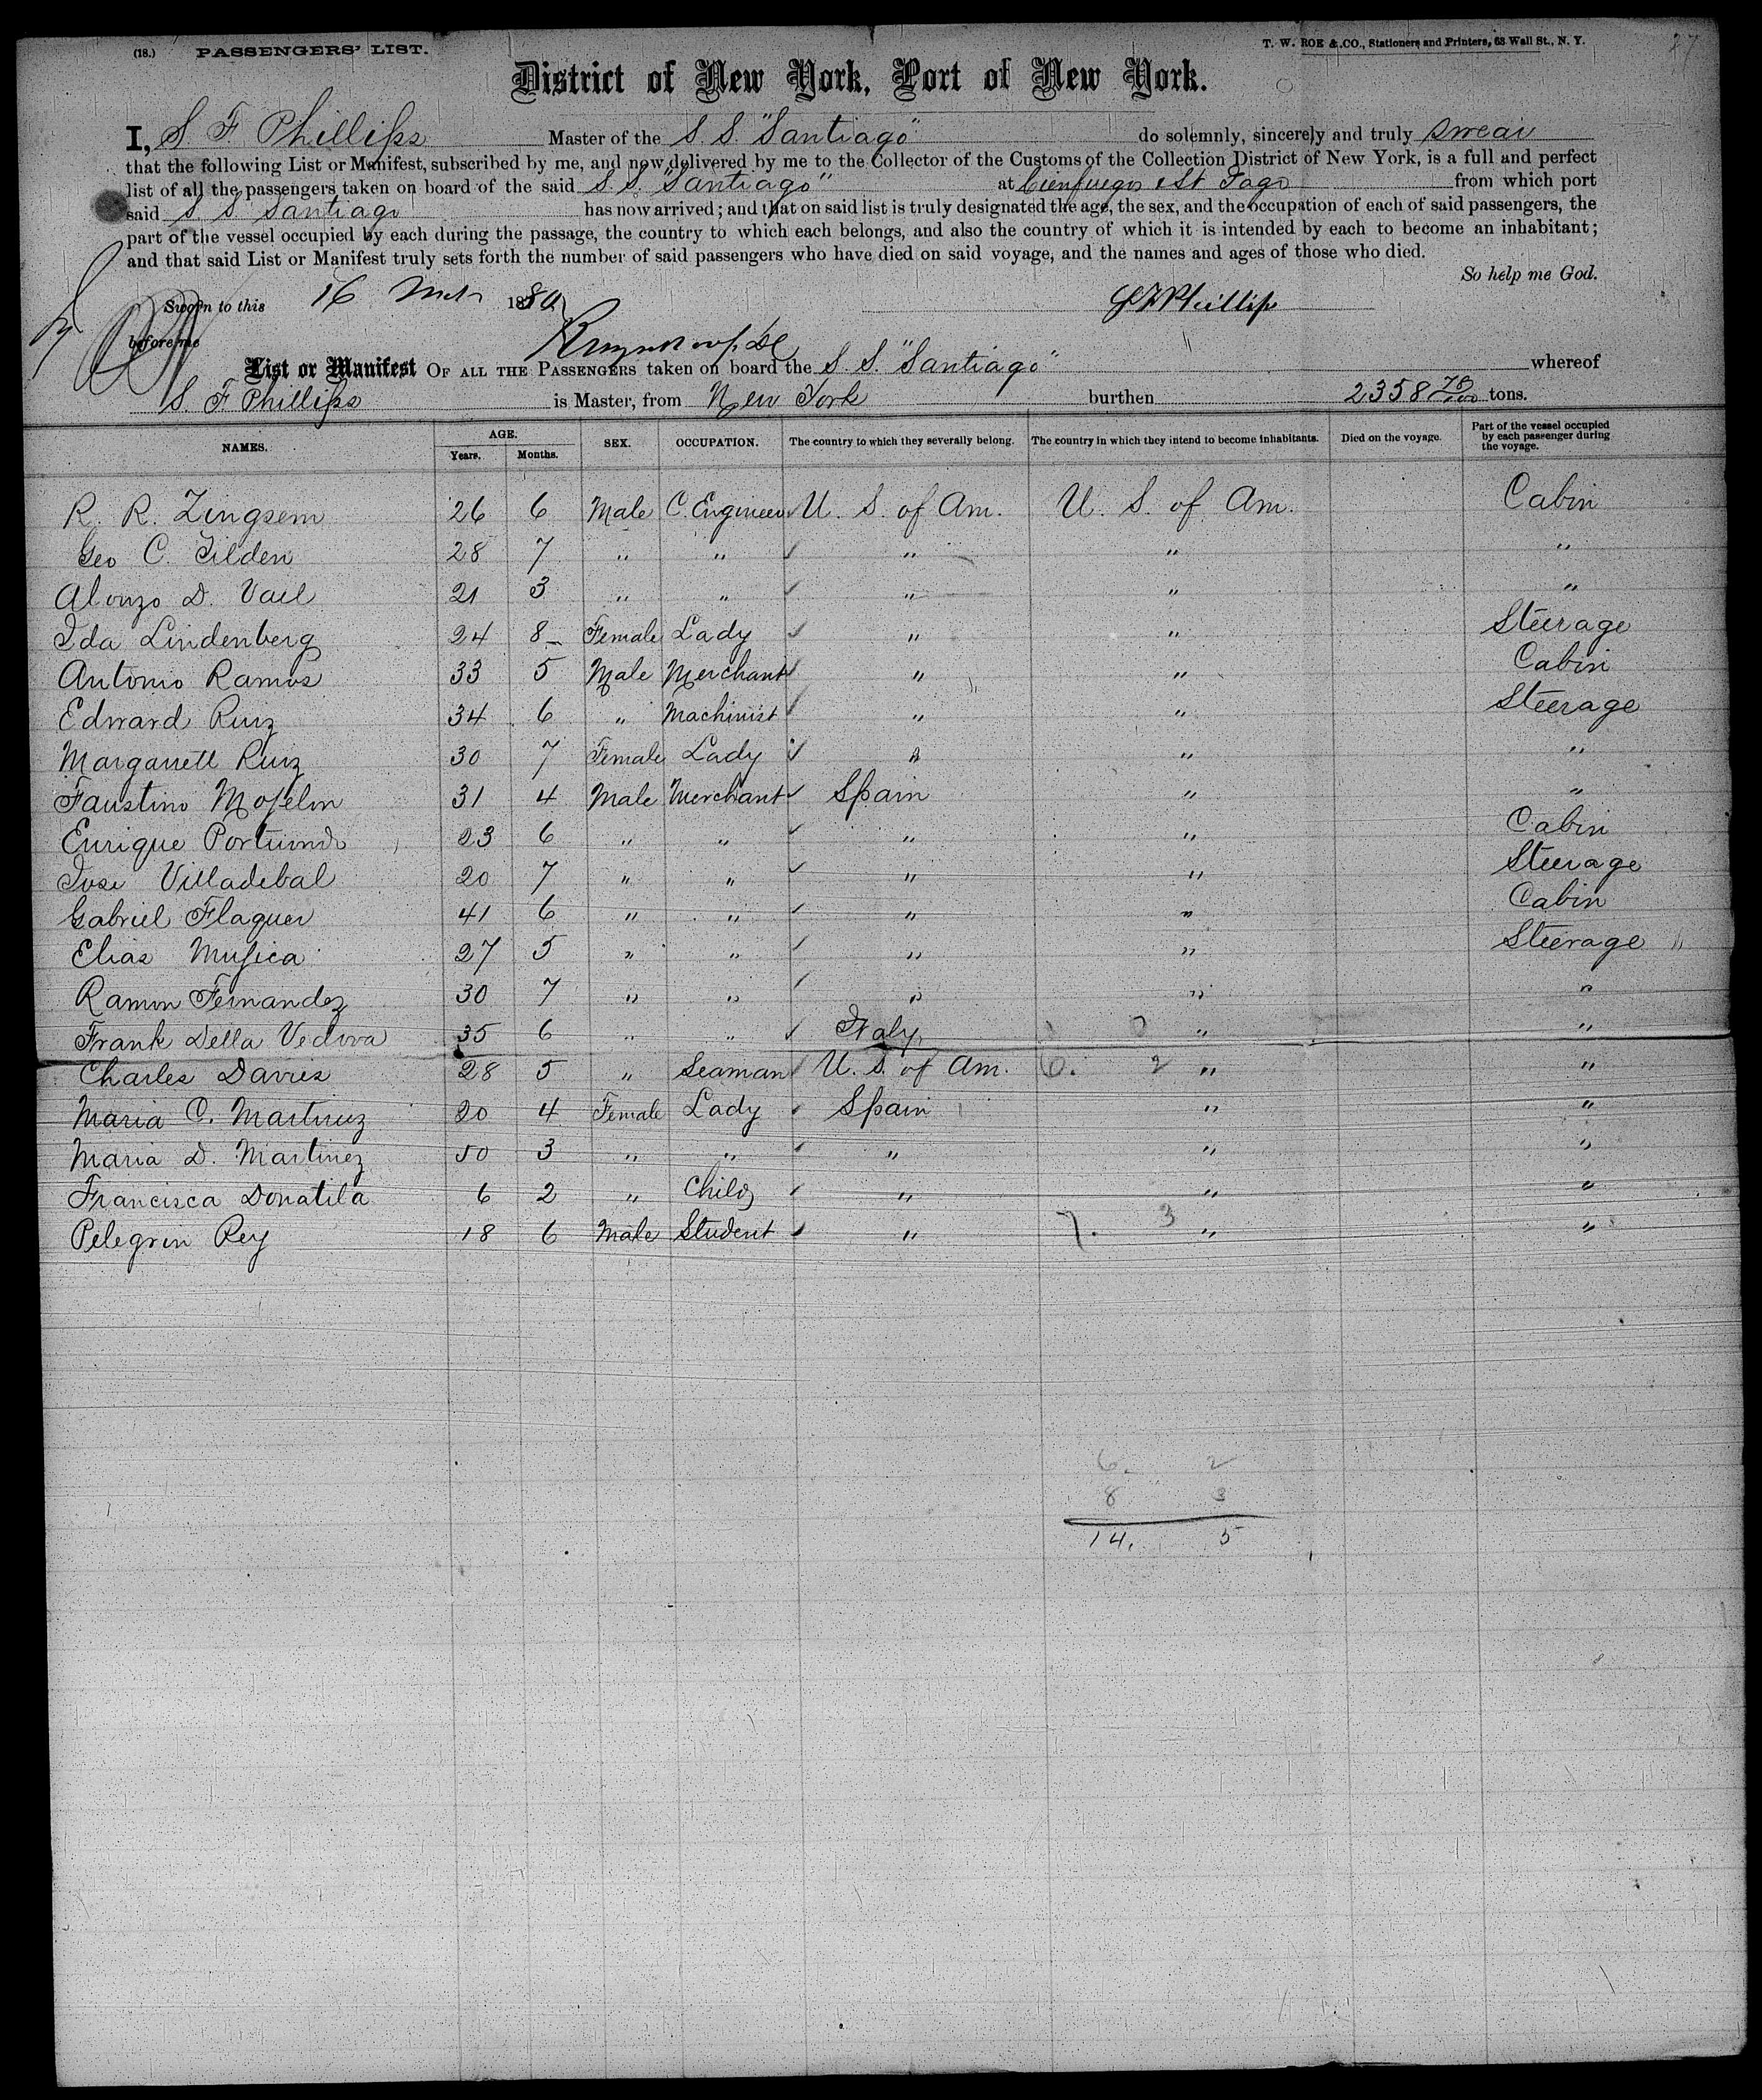 (18.) PASSENGERS' LIST. T. W. ROE & CO., Stationers and Printers, 63 Wall St., N. Y. 27
District of New York, Port of New York.
I, S. F. Phillips Master of the S. S. "Santiago" do solemnly, sincerely and truly swear
that the following List or Manifest, subscribed by me, and now delivered by me to the Collector of the Customs of the Collection District of New York, is a full and perfect
list of all the passengers taken on board of the said S. S. "Santiago" at Cienfuegos & St Iago from which port
said S. S. Santiago has now arrived; and that on said list is truly designated the age, the sex, and the occupation of each of said passengers, the
part of the vessel occupied by each during the passage, the country to which each belongs, and also the country of which it is intended by each to become an inhabitant;
and that said List or Manifest truly sets forth the number of said passengers who have died on said voyage, and the names and ages of those who died.
So help me God.
Sworn to this 16 1880 S F Phillips
before me
List or Manifest OF ALL THE PASSENGERS taken on board the S. S. "Santiago" whereof
S. F. Phillips is Master, from New York burthen 2358 78/100 tons.
NAMES. AGE. Years. Months. SEX. OCCUPATION. The country to which they severally belong. The country in which they intend to become inhabitants. Died on the voyage. Part of the vessel occupied by each passenger during the voyage.
R. R. Zingsem 26 6 Male C. Engineer U. S. of Am. U. S. of Am. Cabin
Geo C. Tilden 28 7 " " " " "
Alonzo D. Vail 21 3 " " " " "
Ida Lindenberg 24 8 Female Lady " " Steerage
Antonio Ramos 33 5 Male Merchant " " Cabin
Edward Ruiz 34 6 " Machinist " " Steerage
Margarrett Ruiz 30 7 Female Lady " " "
Faustino 31 4 Male Merchant Spain " "
Enrique Portuondo 23 6 " " " " Cabin
Jose Villadebal 20 7 " " " " Steerage
Gabriel Flaquer 41 6 " " " " Cabin
Elias Mujica 27 5 " " " " Steerage "
Ramon Fernandez 30 7 " " " " "
Frank Della Vedova 35 6 " " Italy " "
Charles Davies 28 5 " Seaman U. S. of Am. 6. 2 " "
Maria C. Martinez 20 4 Female Lady Spain " "
Maria D. Martinez 50 3 " " " " "
Francisca Donatila 6 2 " Child " " "
Pelegrin Rey 18 6 Male Student " 7. 3 " "
6. 2
8 3
14. 5